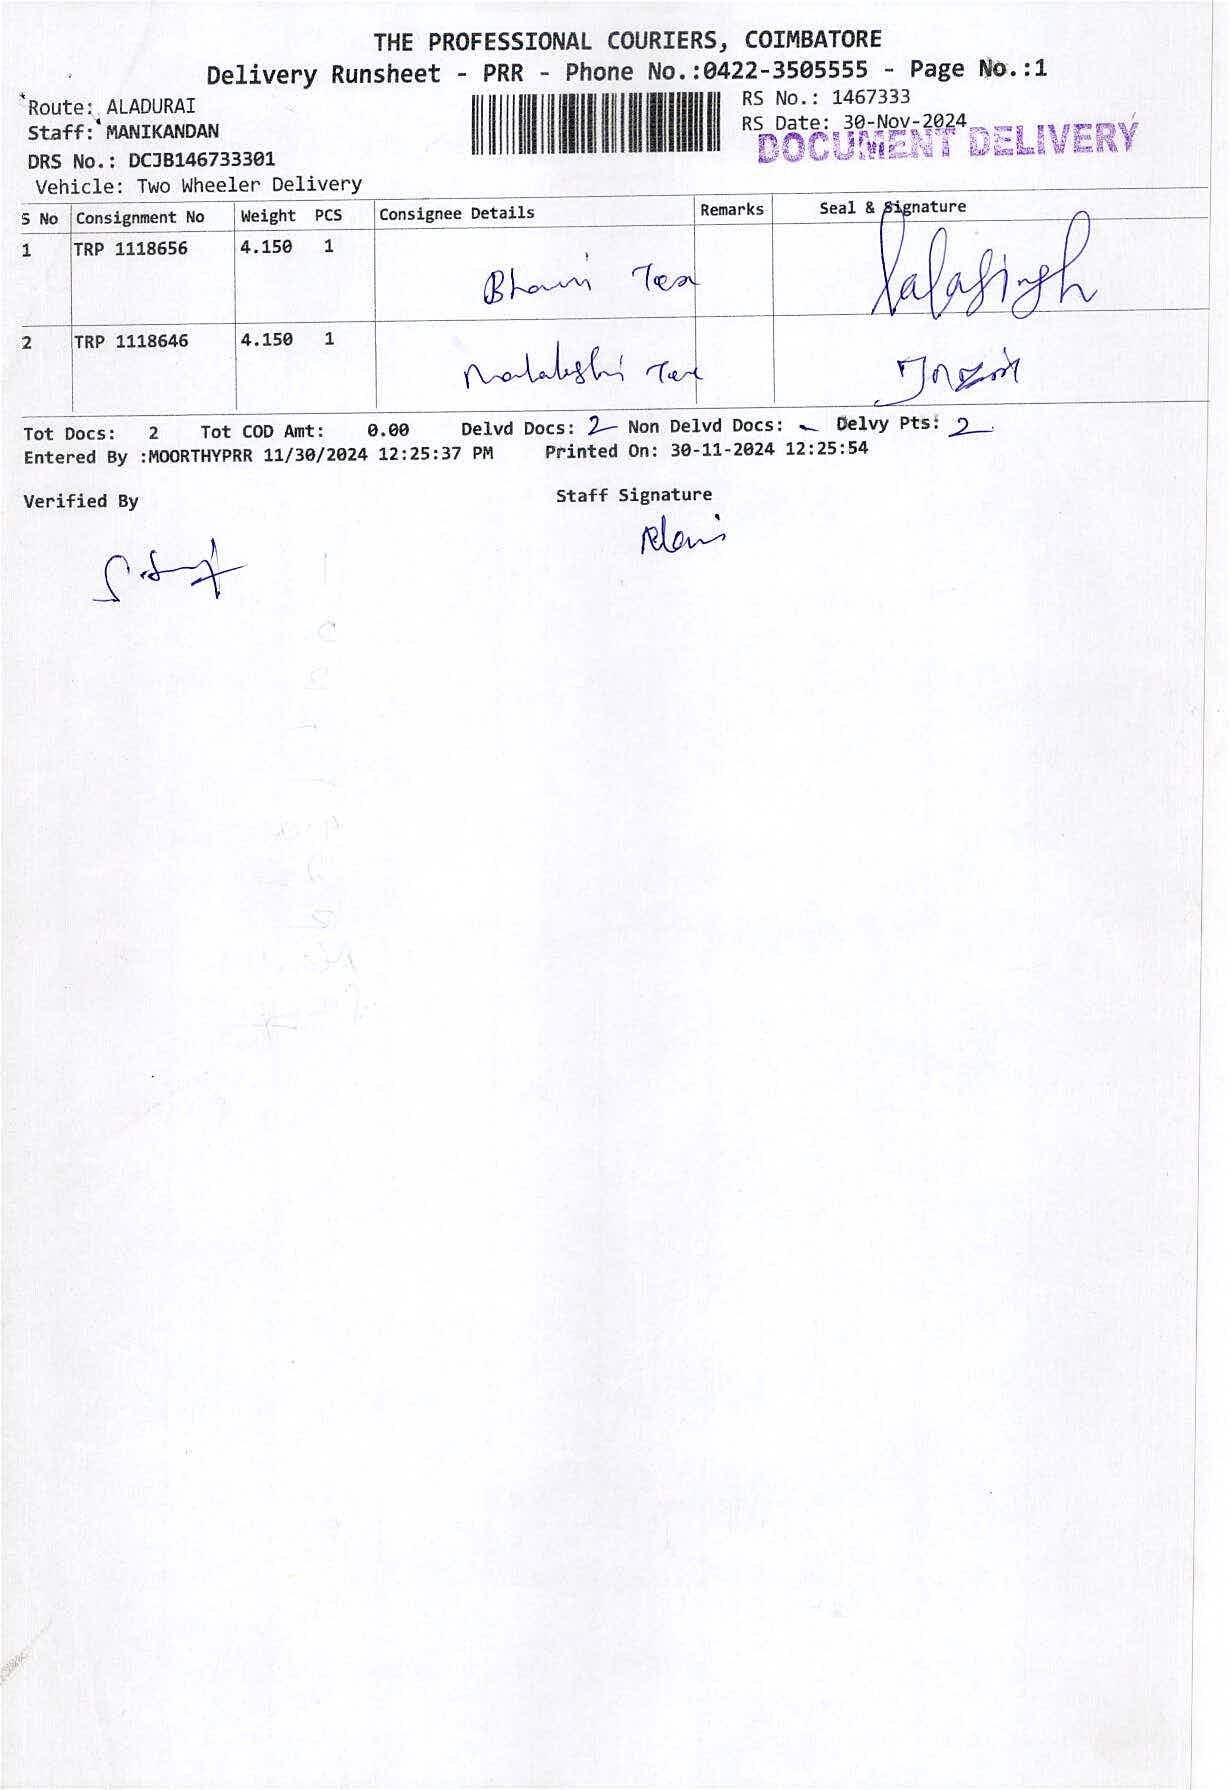 THE PROFESSIONAL COURIERS, COIMBATORE
Delivery Runsheet - PRR - Phone No.:0422-3505555 - Page No.:1
Route: ALADURAI
RS No.: 1467333
Staff: MANIKANDAN
RS Date: 30-Nov-2024
DOCUMENT DELIVERY
DRS No.: DCJB146733301
Vehicle: Two Wheeler Delivery
S No Consignment No Weight PCS Consignee Details Remarks Seal & Signature
1 TRP 1118656 4.150 1 Tex
2 TRP 1118646 4.150 1 Tex
Tot Docs: 2 Tot COD Amt: 0.00 Delvd Docs: 2 Non Delvd Docs: - Delvy Pts: 2
Entered By :MOORTHYPRR 11/30/2024 12:25:37 PM Printed On: 30-11-2024 12:25:54
Verified By Staff Signature